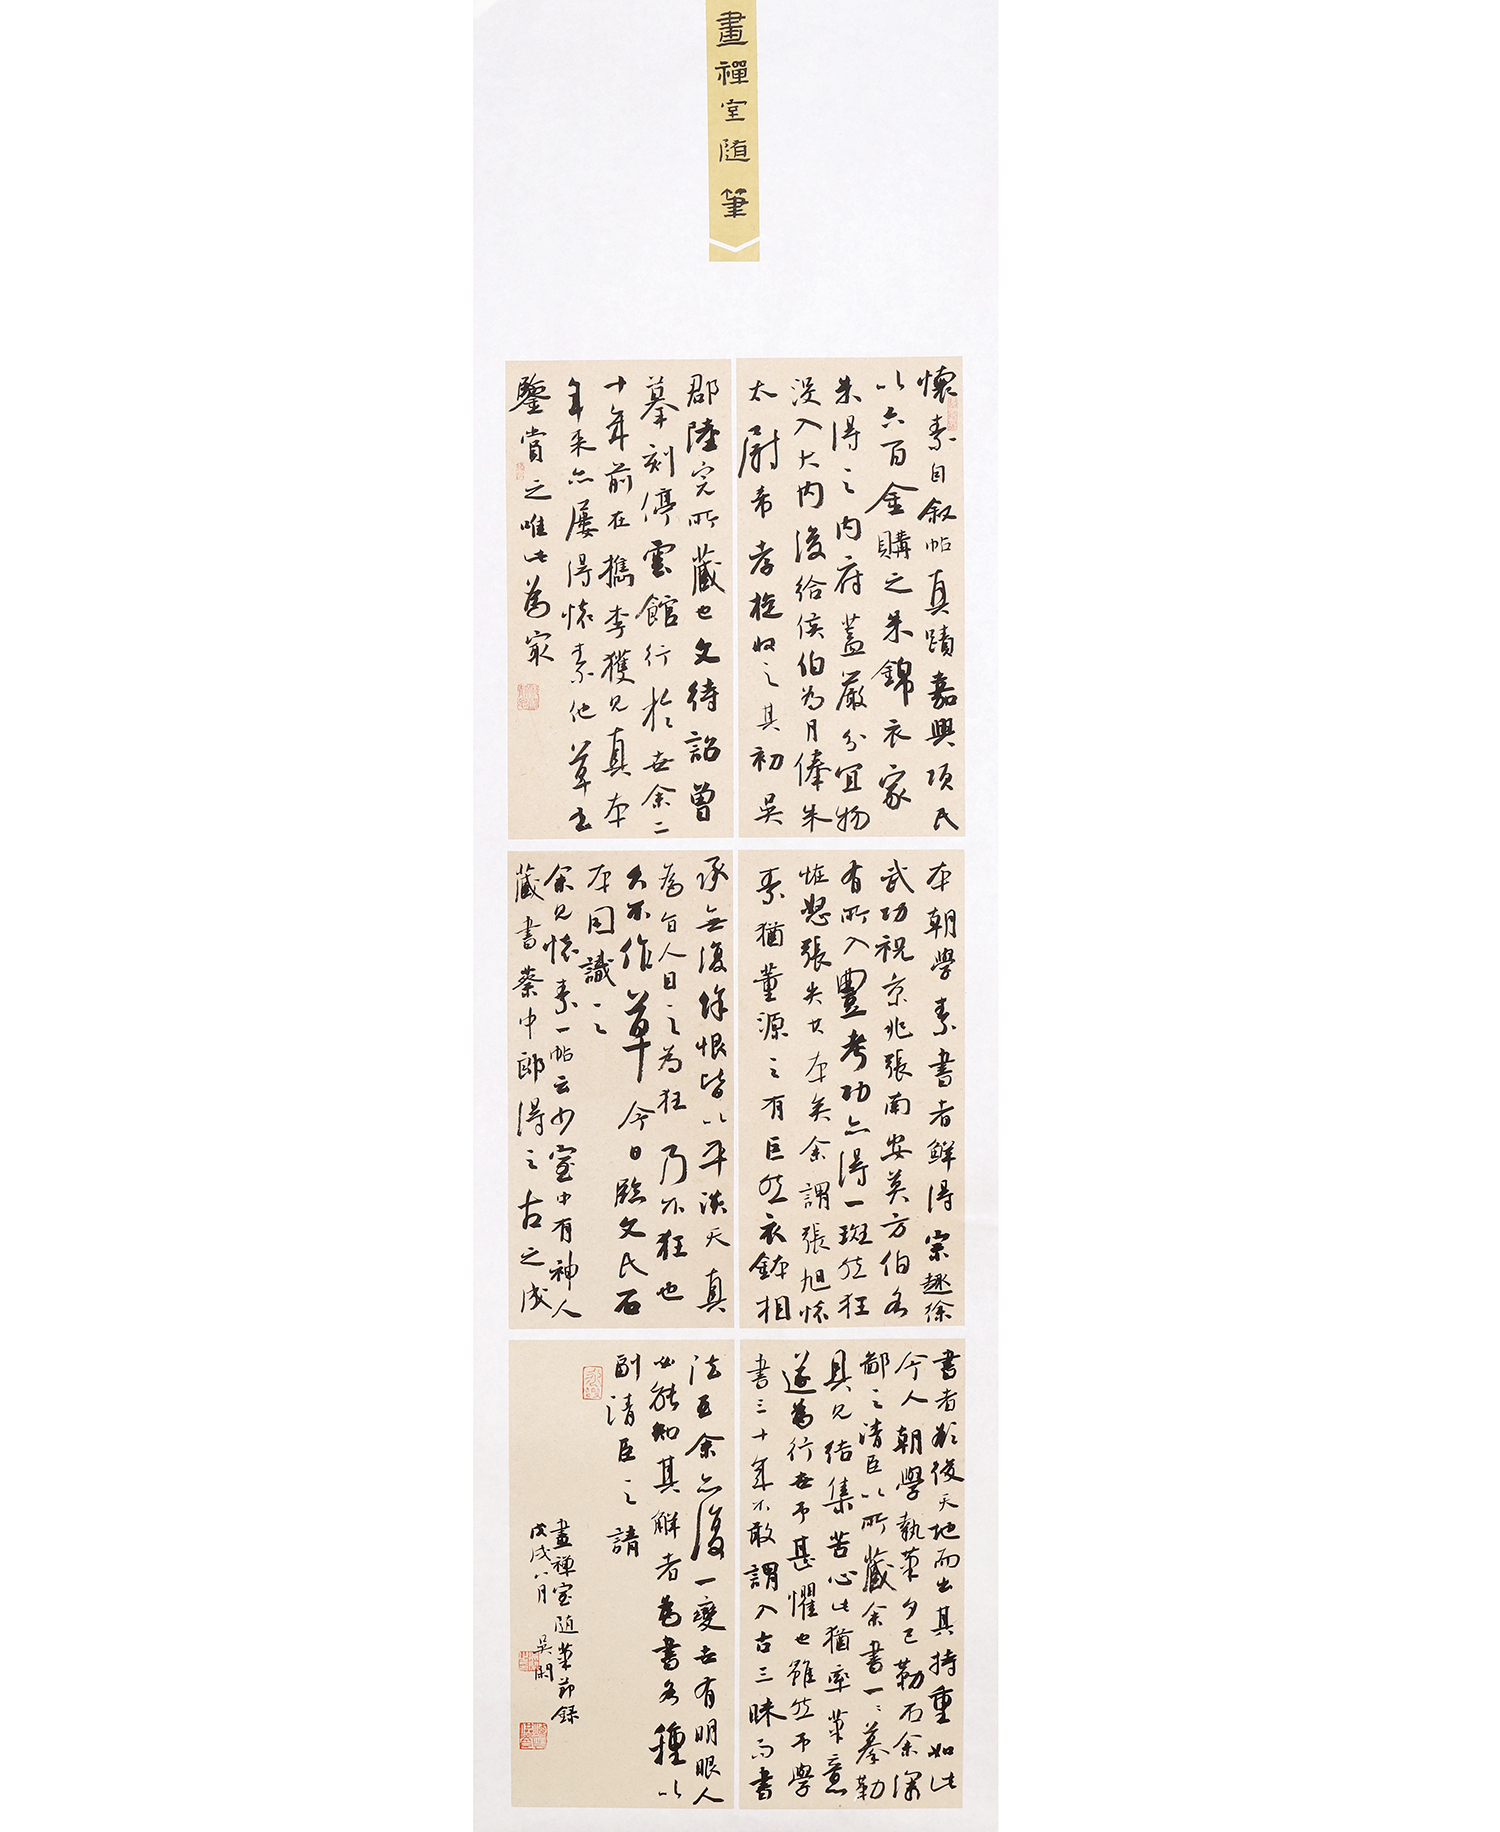 畫禪室随筆
懷素自叙帖真蹟嘉興項氏
以六百金購之朱錦衣家
朱得之内府蓋嚴分宜物
没入大内後給侯伯為月俸朱
太尉希孝旋收之其初吳
郡陸完所藏也文待詔曾
摹刻停雲館行於世余二
十年前在檇李獲見真本
年来亦屢得懷素他草書
鑒賞之唯此為最
本朝學素書者鮮得宗趣徐
武功祝京兆張南安莫方伯各
有所入豐考功亦得一斑然狂
怪怒張失其本矣余謂張旭懷
素猶董源之有巨然衣鉢相
承無復餘恨皆以平淡天真
為旨人目之為狂乃不狂也
久不作草今日臨文氏石
本因識之
余見懷素一帖云少室中有神人
藏書蔡中郎得之古之成
書者欲後天地而出其持重如此
今人朝學執筆夕已勒石余深
鄙之清臣以所藏余書一一摹勒
具見結集苦心此猶率筆意
遂為行世予甚懼也雖然予學
書三十年不敢謂入古三昧而書
法至余亦復一變世有明眼人
必能知其解者為書各種以
副清臣之請
畫禅室随筆節録
戊戌八月
吳閑